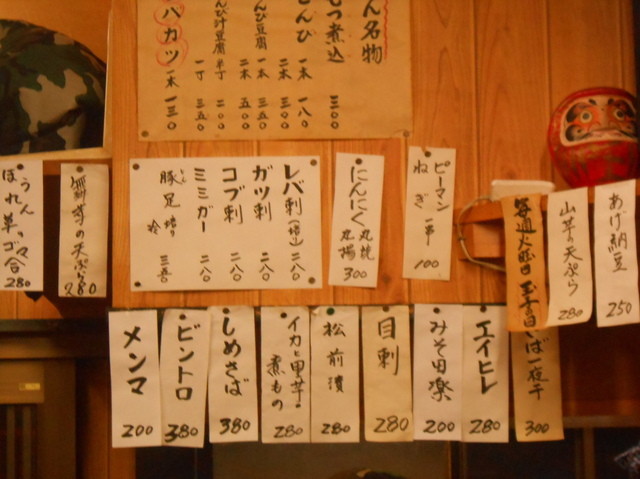 ん名物
もつ煮込 三〇〇
とんび 一本 一八〇
二本 三〇〇
んび豆腐 一本 三五〇
二本 五〇〇
んび汁豆腐 半丁 二〇〇
一丁 三五〇
ハムカツ 一本 一三〇
あげ納豆
250
山芋の天ぷら
280
毎週火曜日 玉子の日
さば一夜干
300
ピーマン
ねぎ 一串
100
にんにく 丸焼
丸揚
300
レバ刺(塩) 二八〇
ガツ刺 二八〇
コブ刺 二八〇
ミミガー 二八〇
豚足 三五〇
の天ぷら
280
ほうれん草ゴマ合
280
エイヒレ
280
みそ田楽
200
目刺
280
松前漬
280
イカと里芋の
煮もの
280
しめさば
380
ビントロ
380
メンマ
200